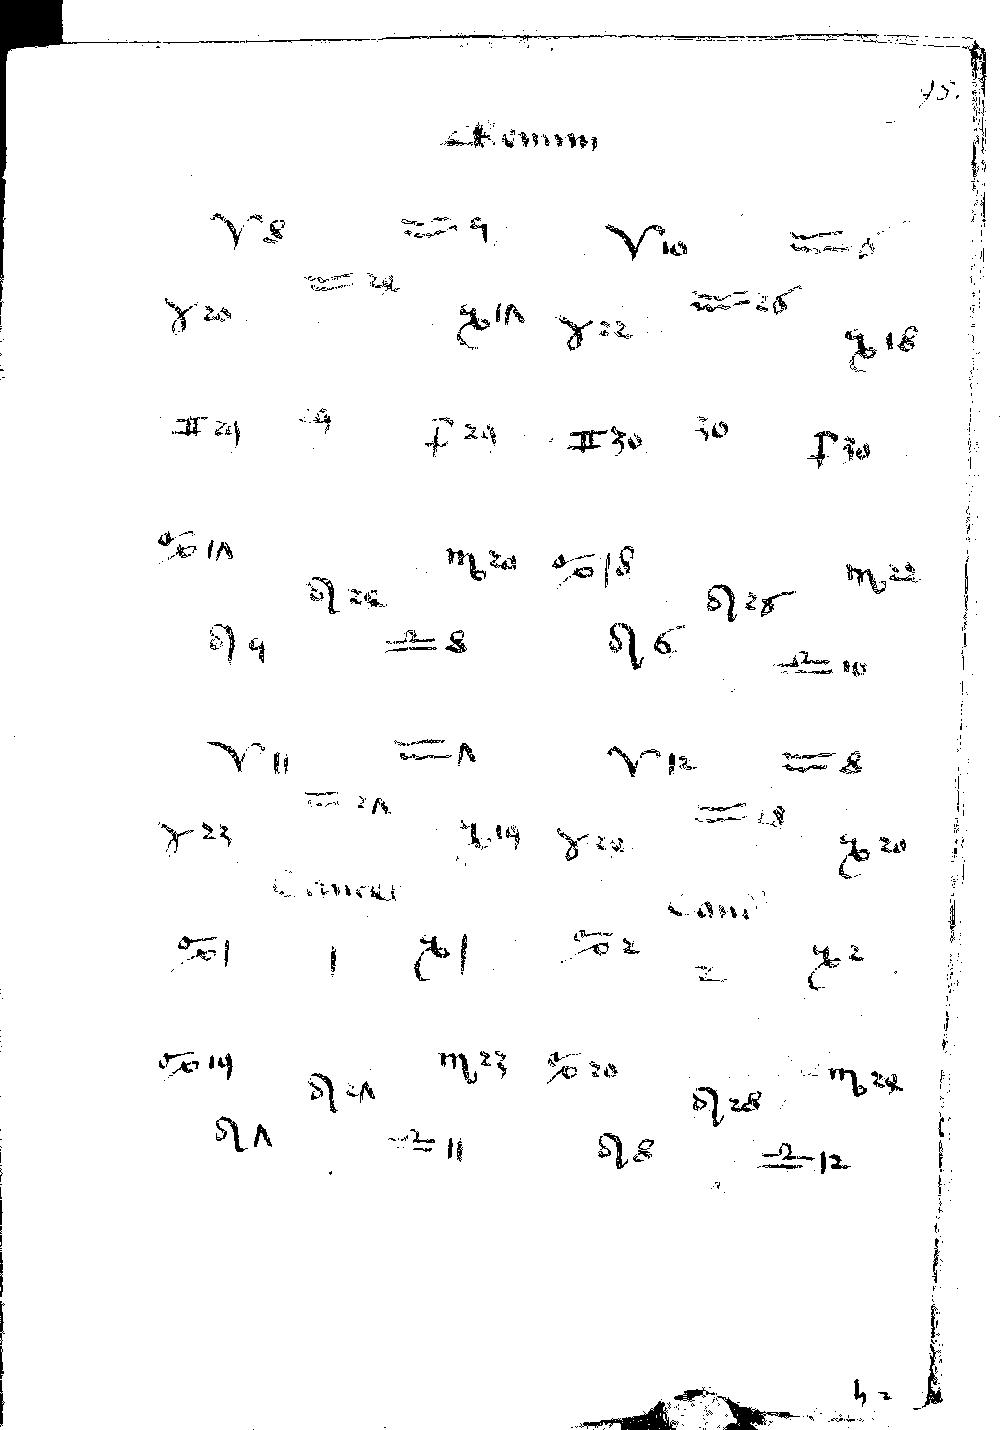 ♈ 8 ♒ 9 ♈ 10 ♒ 6
♉ 20 ♒ 24 ♑ 17 ♉ 22 ♒ 26 ♑ 18
♊ 29 29 ♐ 29 ♊ 30 30 ♐ 30
♋ 17 ♌ 24 ♏ 20 ♋ 18 ♌ 26 ♏ 22
♌ 9 ♎ 8 ♌ 6 ♎ 10
♈ 11 ♒ 7 ♈ 12 ♒ 8
♉ 23 ♒ 27 ♑ 19 ♉ 24 ♒ 28 ♑ 20
♋ 1 1 ♑ 1 ♋ 2 2 ♑ 2
♋ 19 ♌ 27 ♏ 23 ♋ 20 ♌ 28 ♏ 24
♌ 7 ♎ 11 ♌ 8 ♎ 12